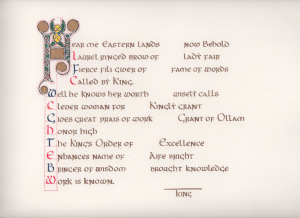 Hear me Eastern lands now Behold
Laurel ringed brow of lady fair
Fierce fili giver of fame of words
Called by King.
Well he knows her worth wisely calls
Clever woman for Kingly grant
Gives great prais of work Grant of Ollam
Honor high
The King's Order of Excellence
Enhances name of Aife bright
Bringer of wisdom brought knowledge
Work is known.
King